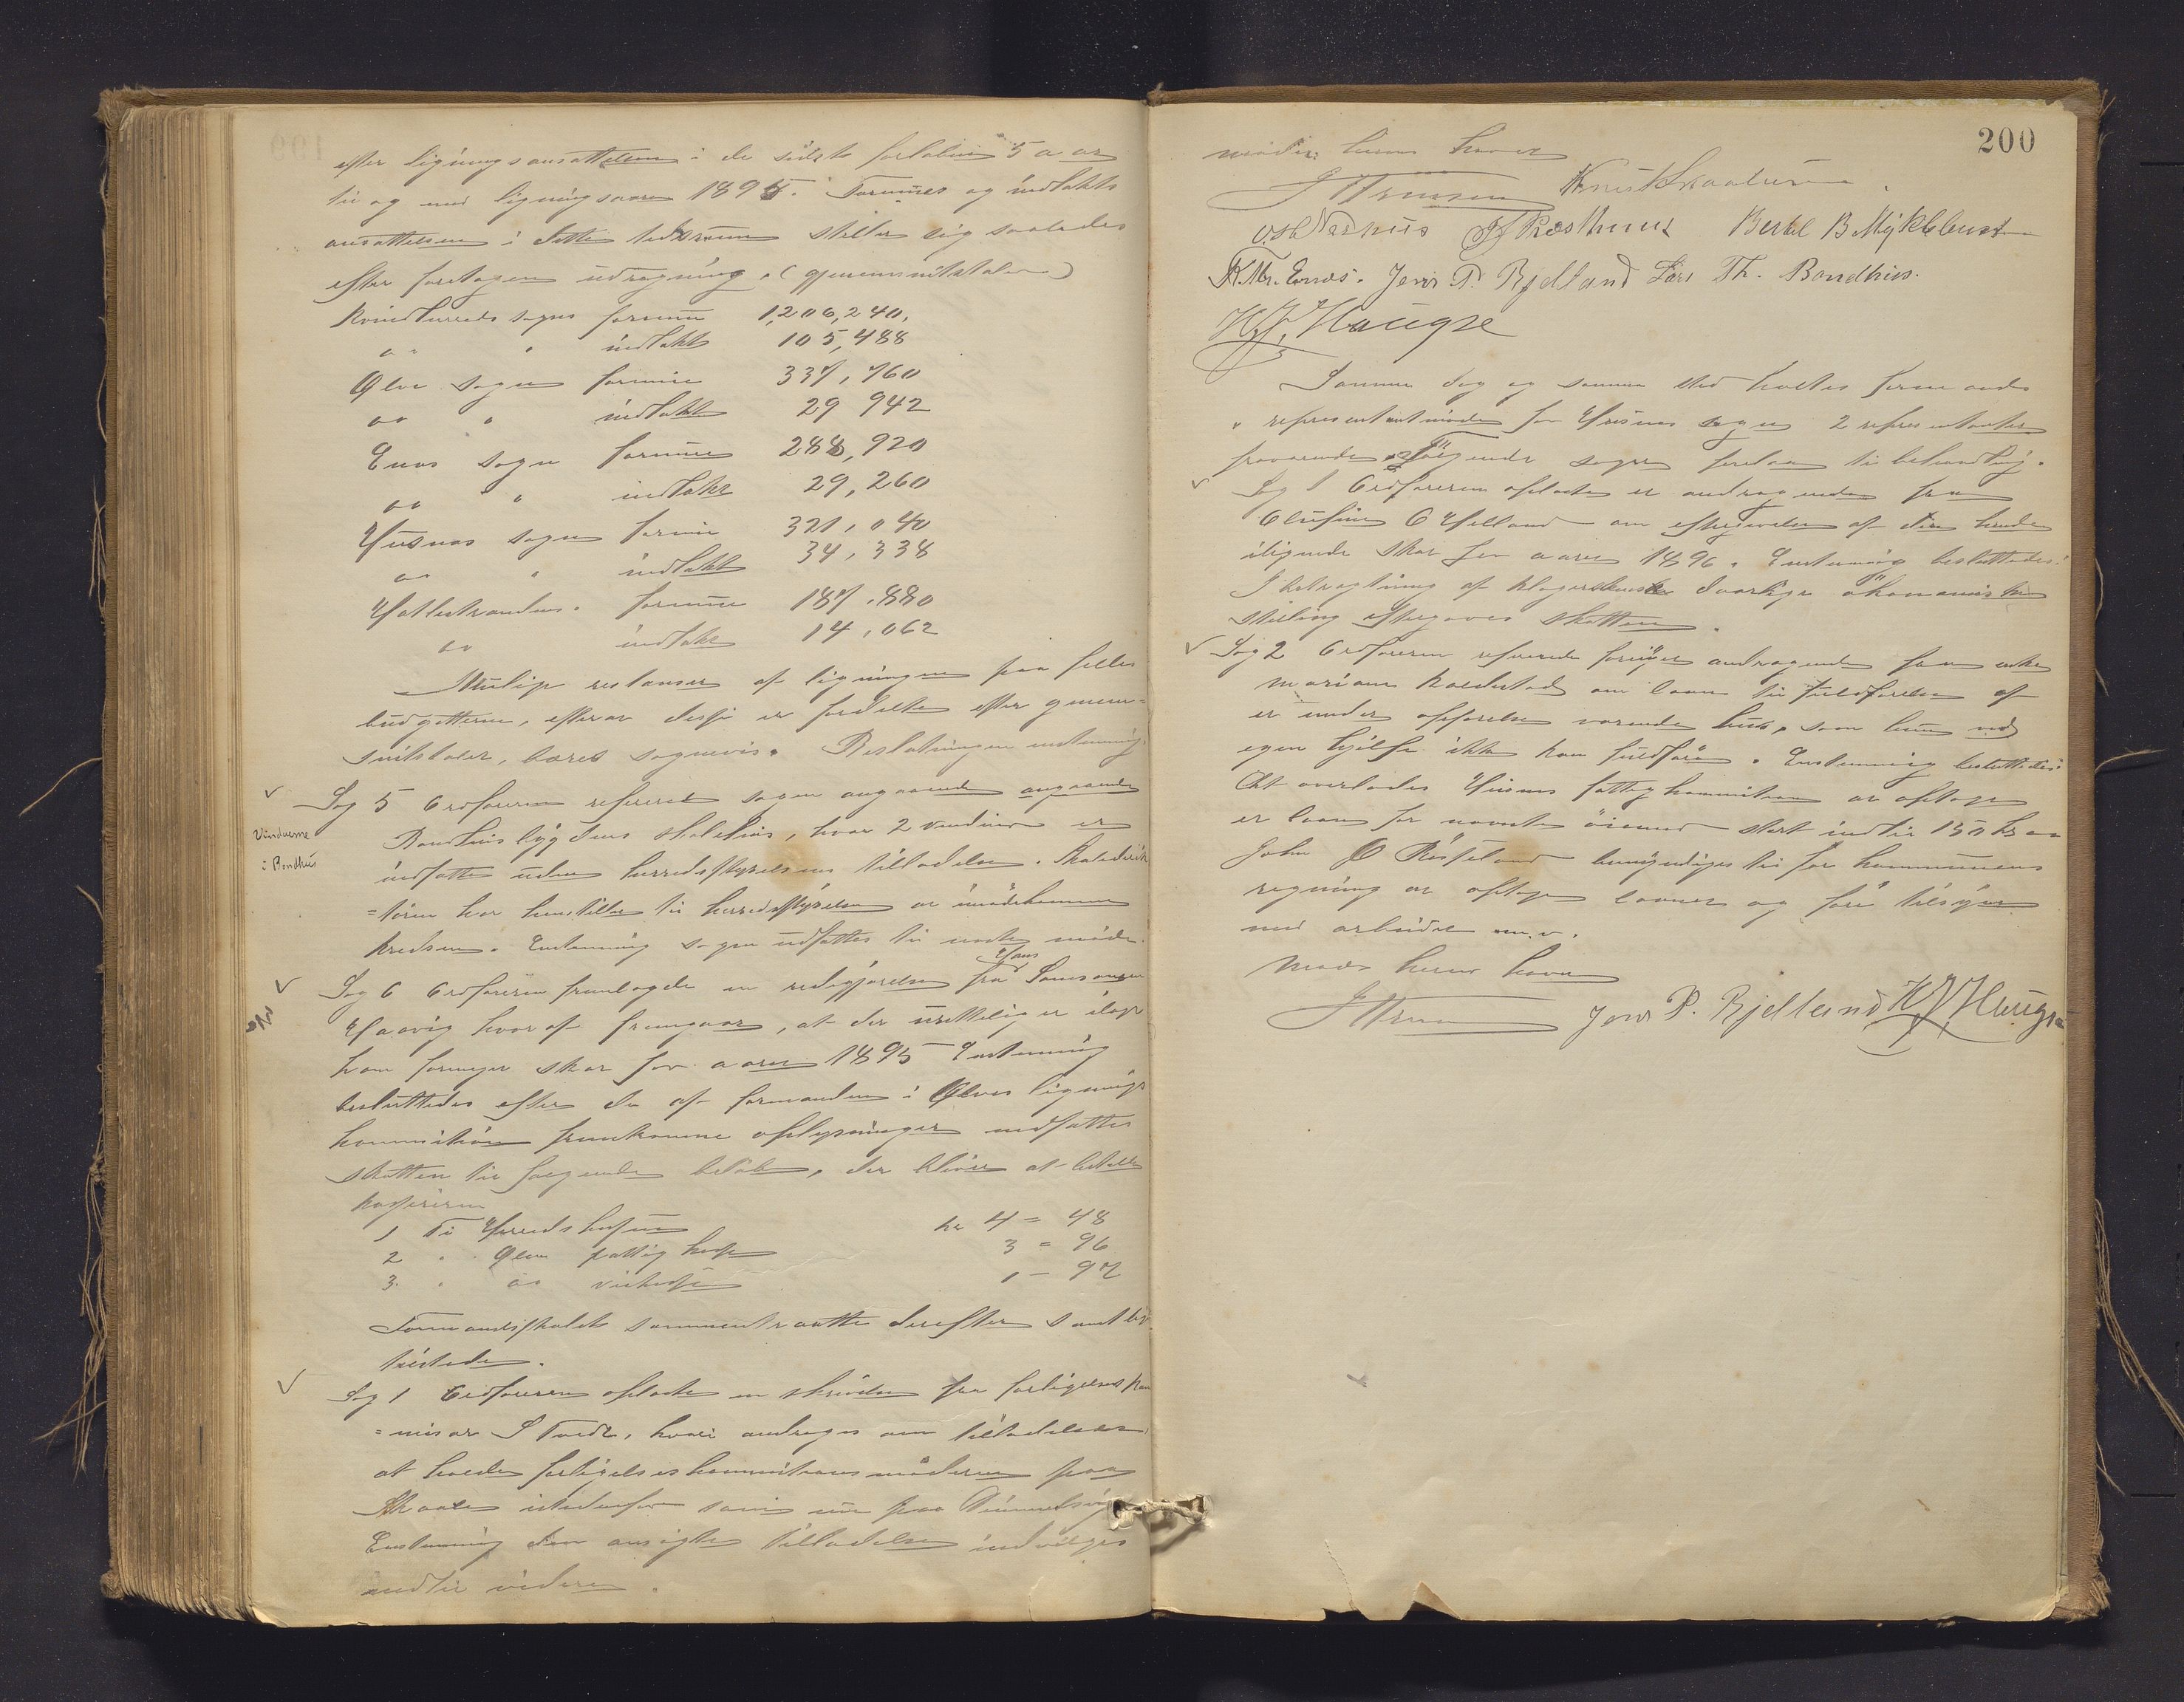 efter ligningsansættelsen i de sidste forløbne 5 aar
til og med ligningsaaret 1895. Formues og indtækts
ansættelsen i dette tidsrum stiller sig saaledes
efter foretagen udregning. (gjennemsnitstal)
Kvindherreds sogns formue 1,206,240,
" " indtækt 105,488
Ølve sogn formue 337,760
do " indtækt 29 942
Enæs sogn formue 288,920
do " indtækt 29,260
Husnæs sogn formue 321,040
do " indtækt 34,338
Hatlestrandens. formue 187.880
do indtækt 14,062
Mulige restanser af ligningen paa fælles
budgetterne, efterat disse er fordelte efter gjennem-
snitstaler, bæres sognevis. Beslutningen enstemmig.
Sag 5 Ordføreren refererte sagen angaaende angaaende
Bondhusbygdens skolehus, hvor 2 vinduer er
indsatte uden herredsstyrelsens tilladelse. Skoledirek
=tøren har henstillet til herredsstyrelsen at imødekomme
kredsen. Enstemmig sagen udsættes til næste møde.
Vinduerne
i Bondhus
Sag 6 Ordføreren fremlagde en redegjørelse fra Hans Samsonsen
Haavig hvoraf fremgaar, at der urettelig er ilagt
ham formues skat for aaret 1895 Enstemmig
besluttedes efter de af formanden i Ølves lignings
kommission fremkomne oplysninger nedsattes
skatten til følgende beløb, der bliver at betale
kassereren
1 Til Herredskassen kr 4 = 48
2 " Ølve fattigkasse 3 = 96
3. " do veikasse 1 — 97
Formandskabet sammentraatte derefter samt
tilstede.
Sag 1 Ordføreren oplæste en skrivelse fra forligelses kom
=misær S Tvedt, hvori andrages om tilladelse
at holde forligelseskommissionsmøderne paa
Skaale istedenfor som nu paa Dimmelsvig
Enstemmig den ansøgte tilladelse indvilges
indtil videre.
200
mødet hermed hævet
Knut Skaaluren
O. H. Nerhus Røsthun Bertel B Myklebust
K. Mr. Enæs. Jens P. Bjelland Lars Th. Bondhus.
H. J. Haugse
Samme dag og samme sted holdtes formands
" repræsentantmøde for Husnes sogn 2 repræsentanter
fraværende. Følgende sager foretaes til behandling.
Sag 1 Ordføreren oplæste et andragende fra
Olufine O Helland om eftergivelse af den hende
ilignede skat for aaret 1896. Enstemmig besluttedes:
I betragtning af klagerskens daarlige økonomiske
stilling eftergives skatten.
Sag 2 Ordføreren refererede fornyet andragende fra enke
Mariane Kaldestad om laan til fuldførelse af
et under opførelse værende hus, som hun ved
egen hjælp ikke kan fuldføre. Enstemmig besluttedes:
Det overlades Husnes fattigkommission at optage
et laan for nævnte øiemed stort indtil 150 kr og
John O Røssland bemyndiges til for kommunens
regning at optage laanet og føre tilsyn
med arbeidet m.v.
Mødet hermed hævet
Jens P. Bjelland H. J. Haugse